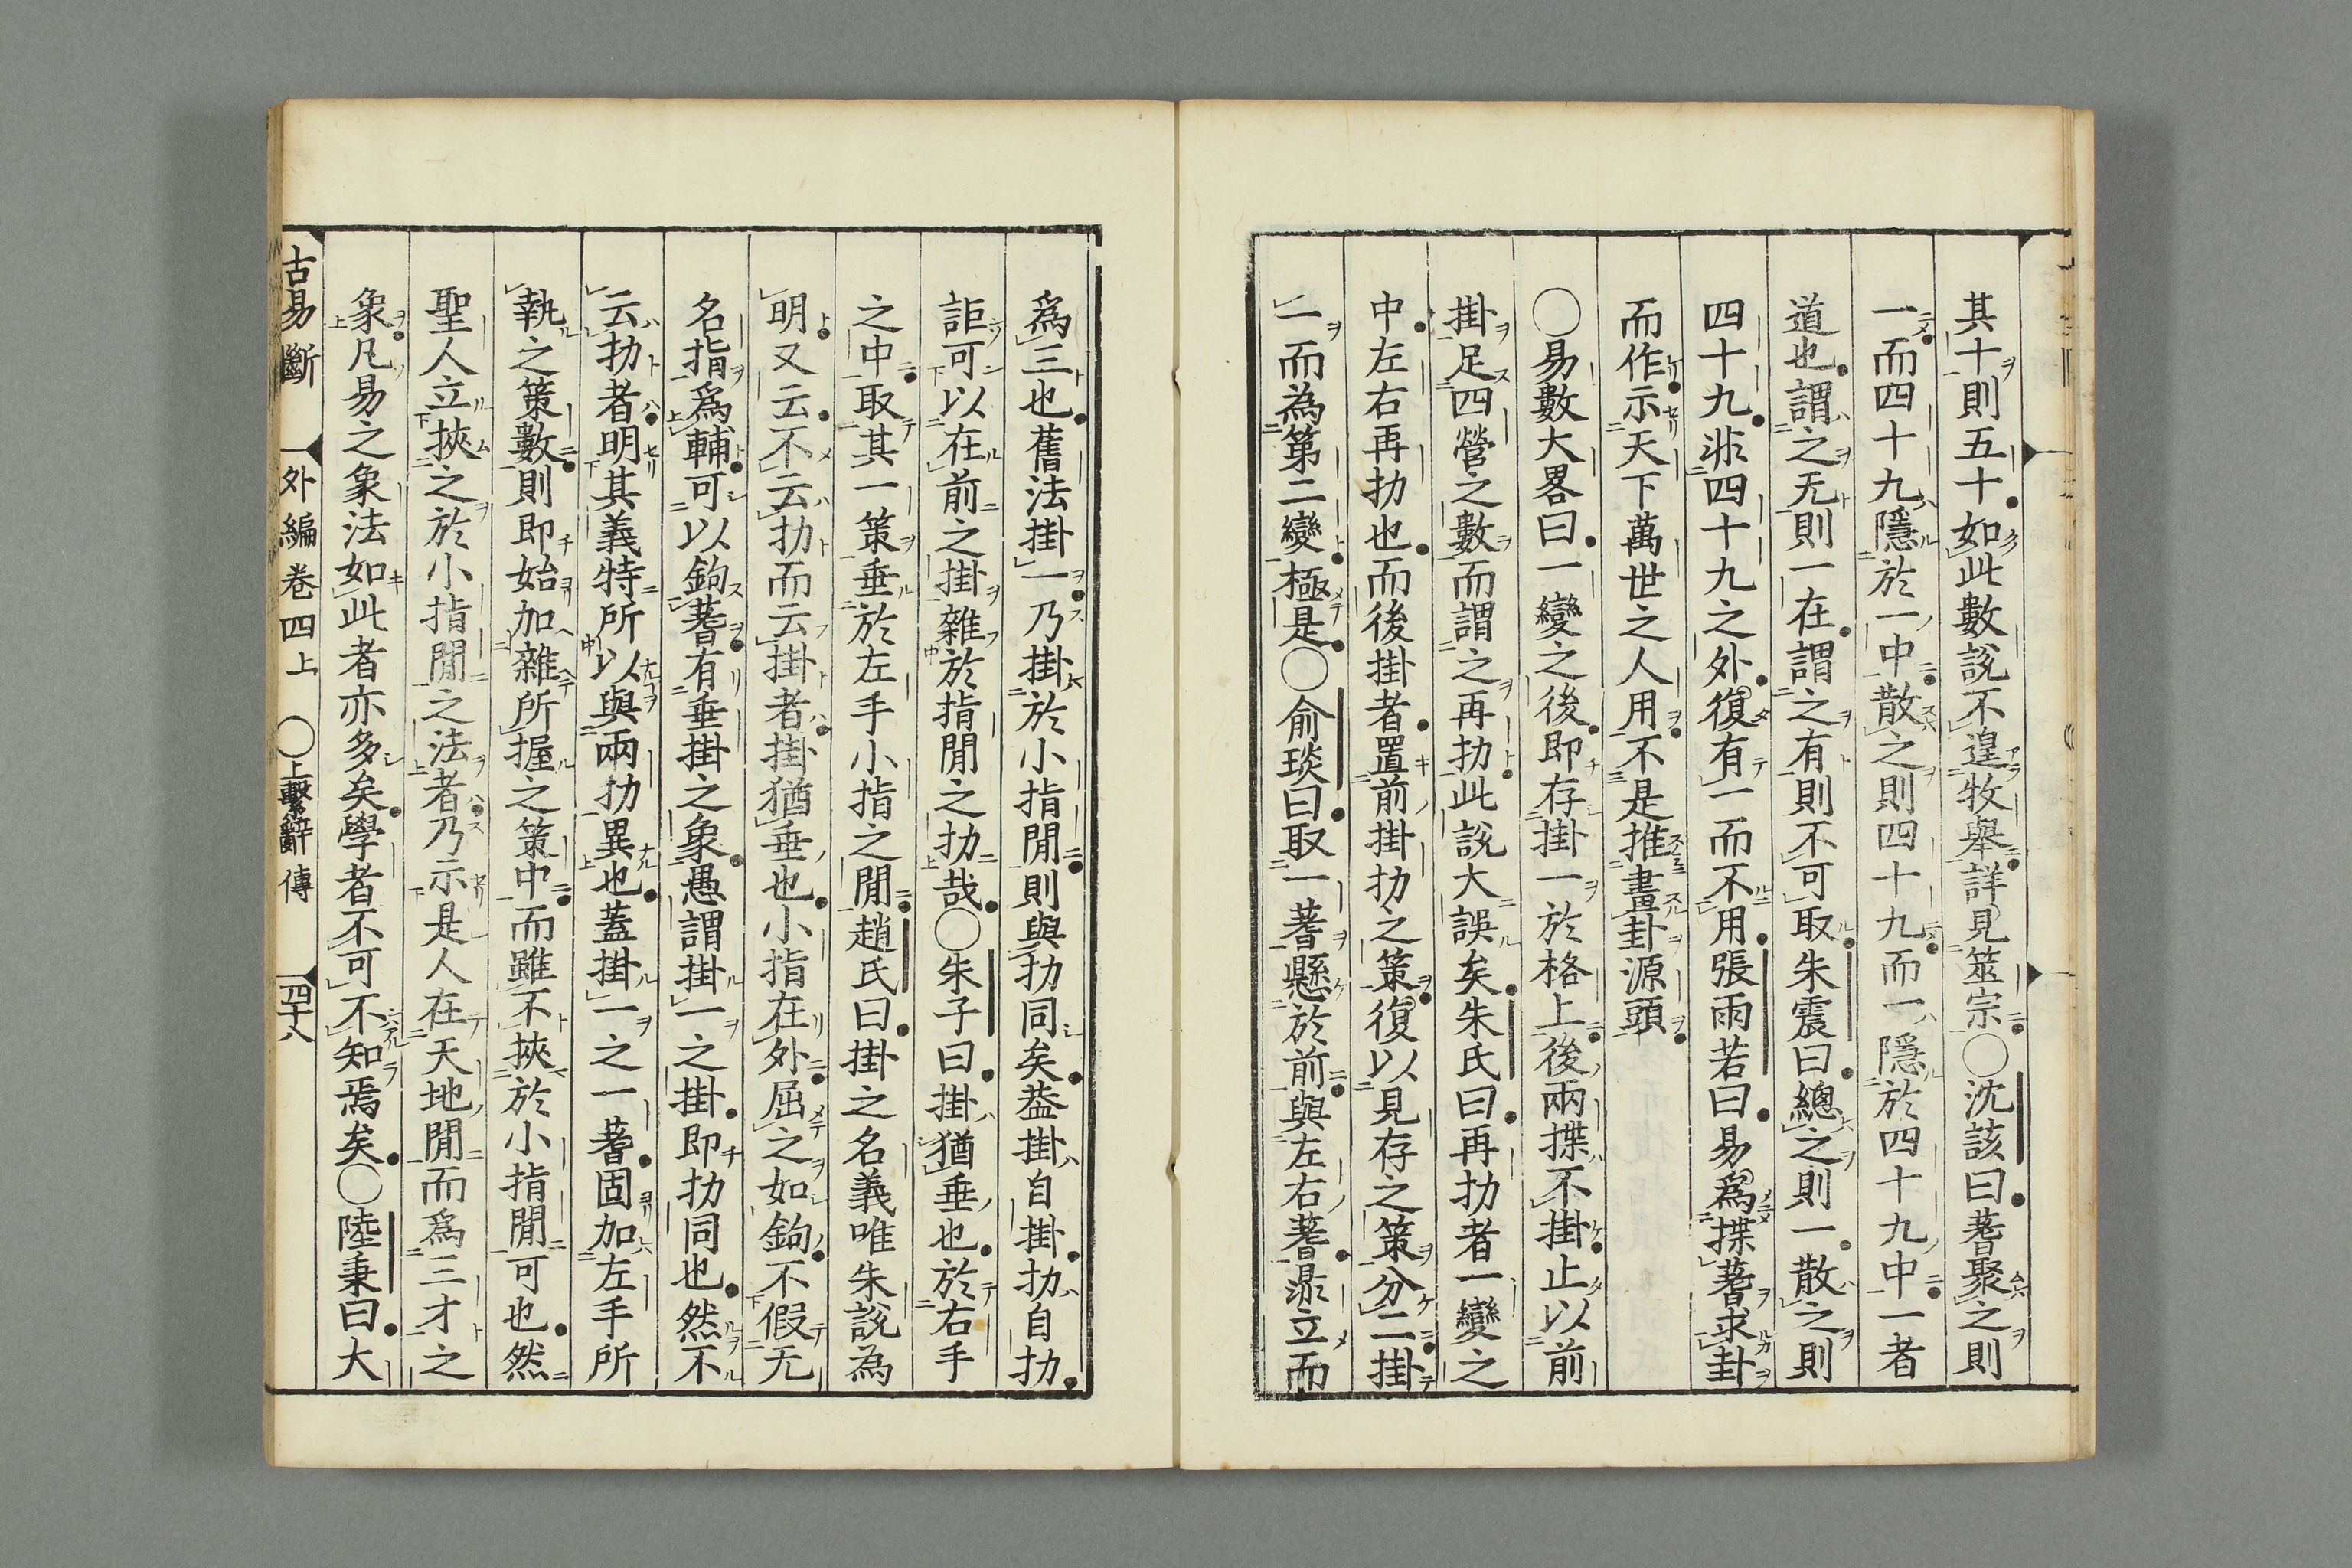 其十則五十如此數說不遑牧舉詳見筮宗○沈該曰蓍聚之則
一而四十九隱於一中散之則四十九而一隱於四十九中一者
道也謂之无則一在謂之有則不可取朱震曰總之則一散之則
四十九非四十九之外復有一而不用張雨若曰易爲揲蓍求卦
而作示天下萬世之人用不是推畫卦源頭
○易數大畧曰一變之後即存掛一於格上後兩揲不掛止以前
掛足四營之數而謂之再扐此說大誤矣朱氏曰再扐者一變之
中左右再扐也而後掛者置前掛扐之策復以見存之策分二掛
一而為第二變極是○俞琰曰取一蓍懸於前與左右蓍鼎立而
爲三也舊法掛一乃掛於小指閒則與扐同矣葢掛自掛扐自扐
詎可以在前之掛雜於指閒之扐哉○朱子曰掛猶垂也於右手
之中取其一策垂於左手小指之閒趙氏曰掛之名義唯朱說為
明又云不云扐而云掛者掛猶垂也小指在外屈之如鉤不假无
名指爲輔可以鉤蓍有垂掛之象愚謂掛一之掛即扐同也然不
云扐者明其義特所以與兩扐異也蓋掛一之一蓍固加左手所
執之策數則即始加雜所握之策中而雖不挾於小指閒可也然
聖人立挾之於小指閒之法者乃示是人在天地閒而爲三才之
象凡易之象法如此者亦多矣學者不可不知焉矣○陸秉曰大
古易斷　外編卷四上　○上繫辭傳　四十八